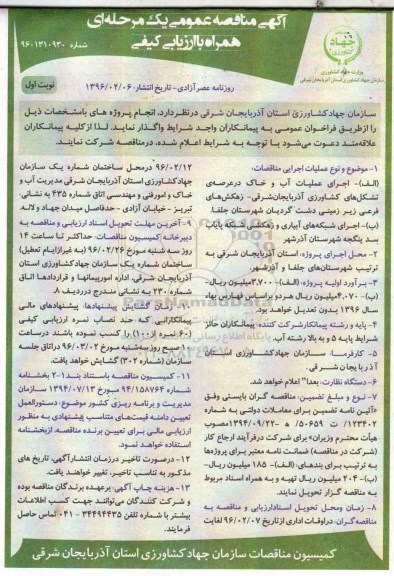 آگهی مناقصه عمومی یک مرحله‌ای
همراه با ارزیابی کیفی
شماره ۹۶۰۱۳۱۰۹۳۰
جهاد
وزارت جهاد کشاورزی
سازمان جهاد کشاورزی استان آذربایجان شرقی
روزنامه عصر آزادی - تاریخ انتشار: ۱۳۹۶/۰۲/۰۶
نوبت اول
سازمان جهاد کشاورزی استان آذربایجان شرقی در نظر دارد، انجام پروژه های با مشخصات ذیل
را از طریق فراخوان عمومی به پیمانکاران واجد شرایط واگذار نماید. لذا از کلیه پیمانکاران
علاقه‌مند دعوت می‌شود با توجه به شرایط اعلام شده، در مناقصه شرکت نمایند.
۱- موضوع و نوع عملیات اجرایی مناقصات:
(الف)- اجرای عملیات آب و خاک در عرصه‌ی
تشکل‌های کشاورزی آذربایجان‌شرقی- زهکش‌های
فرعی زیر زمینی دشت گردیان شهرستان جلفا
(ب)- اجرای شبکه‌های آبیاری و زهکش شبکه پایاب
سد ینگجه شهرستان آذرشهر
۲- محل اجرای پروژه: استان آذربایجان شرقی به
ترتیب شهرستان‌های جلفا و آذرشهر
۳- برآورد اولیه پروژه: (الف)- ۳،۷۰۰ میلیون ریال-
(ب)- ۴،۰۷۰ میلیون ریال هر دو براساس فهارس بهاء
سال ۱۳۹۶ بدون تعدیل خواهد بود.
۴- پایه و رشته پیمانکار شرکت کننده: پیمانکاران حائز
شرایط پایه ۵ و به بالا رشته آب.
۵- کارفرما: سازمان جهاد کشاورزی استان
آذربایجان شرقی.
۶- دستگاه نظارت: بعدا" اعلام خواهد شد.
۷- نوع و مبلغ تضمین: مناقصه گران بایستی وفق
«آئین نامه تضمین برای معاملات دولتی به شماره
۱۲۳۴۰۲/ت ۵۰۶۵۹ ه - ۱۳۹۴/۰۹/۲۲ مصوب
هیأت محترم وزیران» برای شرکت در فرآیند ارجاع کار
(شرکت در مناقصه) ضمانت نامه معتبر برای پروژه‌ها
به ترتیب برای بندهای: (الف)- ۱۸۵ میلیون ریال-
(ب)- ۲۰۴ میلیون ریال تهیه و به همراه اسناد مربوط
به مناقصه گزار تحویل نمایند.
۸- زمان ومحل تحویل اسناد ارزیابی و مناقصه به
مناقصه گران: در اوقات اداری از تاریخ ۹۶/۰۲/۰۷ لغایت
۹۶/۰۲/۱۲ در محل ساختمان شماره یک سازمان
جهاد کشاورزی استان آذربایجان شرقی مدیریت آب و
خاک و امور فنی و مهندسی اتاق شماره ۳۳۵ به نشانی:
تبریز - خیابان آزادی - حدفاصل میدان جهاد و لاله.
۹- آخرین مهلت تحویل اسناد ارزیابی و مناقصه به
دبیرخانه کمیسیون مناقصات: حداکثر تا ساعت ۱۴
روز سه شنبه مورخ ۹۶/۰۲/۲۶ (به غیر از ایام تعطیل)
ساختمان شماره یک سازمان جهاد کشاورزی استان
آذربایجان شرقی، اداره امور پیمانها و قراردادها اتاق
شماره ۲۳۰ به نشانی مندرج در ردیف ۸.
۱۰- زمان گشایش پیشنهادها: پیشنهادهای مالی
پیمانکارانی که حد نصاب نمره ارزیابی کیفی
(۶۰ نمره از ۱۰۰) را کسب نموده باشند در ساعت
۱۰ صبح روز سه شنبه مورخ ۹۶/۰۳/۰۲ در اتاق جلسه
سازمان (شماره ۳۰۲) گشایش خواهد یافت.
۱۱- کمیسیون مناقصه باستناد بند ۱-۲ بخشنامه
شماره ۹۴/۱۵۸۷۶۴ مورخ ۱۳۹۴/۰۷/۱۳ سازمان
مدیریت و برنامه ریزی کشور موضوع: دستورالعمل
تعیین دامنه قیمت‌های متناسب پیشنهادی به منظور
ارزیابی مالی برای تعیین برنده مناقصه، از بخشنامه
استفاده خواهد نمود.
۱۲- در صورت تاخیر در زمان انتشار آگهی، تاریخ های
مذکور به تناسب تاخیر، تغییر خواهند یافت.
۱۳- هزینه چاپ آگهی، بر عهده برندگان مناقصه بوده
و شرکت کنندگان می‌توانند جهت کسب اطلاعات
بیشتر با شماره تلفن ۳۴۴۹۴۴۳۵ - ۰۴۱ تماس حاصل
فرمایند.
کمیسیون مناقصات سازمان جهاد کشاورزی استان آذربایجان شرقی